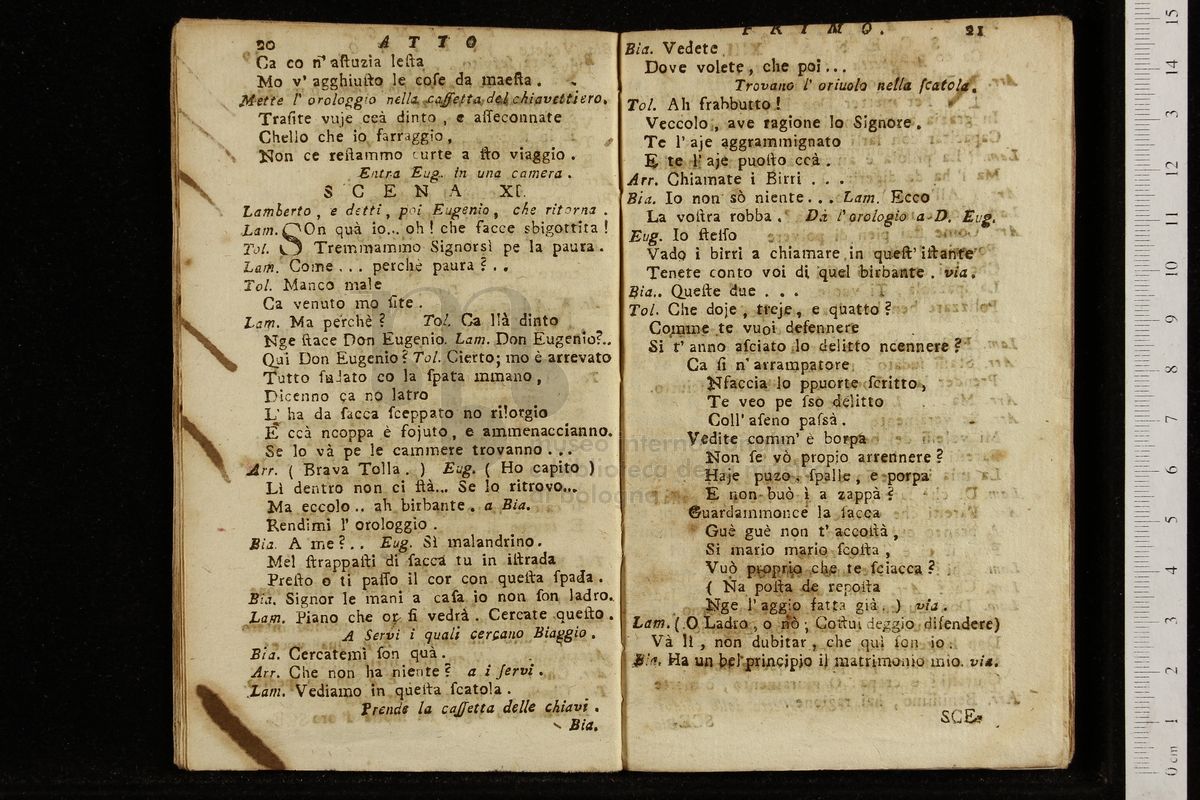 20 ATTO
Ca co n' aſtuzia leſta
Mo v' agghiuſto le coſe da maeſta.
Mette l' orologgio nella caſſetta del chiavettiero.
Traſite vuje ccà dinto, e aſſeconnate
Chello che io farraggio,
Non ce reſtammo curte a ſto viaggio.
Entra Eug. in una camera.
SCENA XI.
Lamberto, e detti, poi Eugenio, che ritorna.
Lam. SOn quà io... oh! che facce sbigottita!
Tol. Tremmammo Signorsì pe la paura.
Lam. Come... perchè paura?..
Tol. Manco male
Ca venuto mo ſite.
Lam. Ma perchè? Tol. Ca llà dinto
Nge ſtace Don Eugenio. Lam. Don Eugenio?..
Qui Don Eugenio? Tol. Cierto; mo è arrevato
Tutto ſudato co la ſpata mmano,
Dicenno ca no latro
L' ha da ſacca ſceppato no rilorgio
E ccà ncoppa è fojuto, e ammenaccianno.
Se lo và pe le cammere trovanno...
Arr. ( Brava Tolla. ) Eug. ( Ho capito )
Lì dentro non ci ſtà... Se lo ritrovo...
Ma eccolo.. ah birbante. a Bia.
Rendimi l' orologgio.
Bia. A me?.. Eug. Sì malandrino.
Mel ſtrappaſti di ſacca tu in iſtrada
Preſto o ti paſſo il cor con queſta ſpada.
Bia. Signor le mani a caſa io non ſon ladro.
Lam. Piano che or ſi vedrà. Cercate queſto.
A Servi i quali cercano Biaggio.
Bia. Cercatemi ſon quà.
Arr. Che non ha niente? a i ſervi.
Lam. Vediamo in queſta ſcatola.
Prende la caſſetta delle chiavi.
Bia.
PRIMO. 21
Bia. Vedete
Dove volete, che poi...
Trovano l' oriuolo nella ſcatola.
Tol. Ah frabbutto!
Veccolo, ave ragione lo Signore.
Te l' aje aggrammignato
E te l' aje puoſto ccà.
Arr. Chiamate i Birri...
Bia. Io non sò niente... Lam. Ecco
La voſtra robba. Dà l' orologio a D. Eug.
Eug. Io ſteſſo
Vado i birri a chiamare in queſt' iſtante
Tenete conto voi di quel birbante. via.
Bia.. Queſte due...
Tol. Che doje, treje, e quatto?
Comme te vuoi defennere
Si t' anno aſciato lo delitto ncennere?
Ca ſi n' arrampatore
Nfaccia lo ppuorte ſcritto,
Te veo pe ſso delitto
Coll' aſeno paſsà.
Vedite comm' è borpa
Non ſe vò propio arrennere?
Haje puzo, ſpalle, e porpa
E non buò ì a zappà?
Guardammonce la ſacca
Guè guè non t' accoſtà,
Si mario mario ſcoſta,
Vuò proprio che te ſciacca?
( Na poſta de repoſta
Nge l' aggio fatta già. ) via.
Lam. ( O Ladro, o nò; Coſtui deggio difendere)
Và lì, non dubitar, che quì ſon io.
Bia. Ha un bel principio il matrimonio mio. via.
SCE-